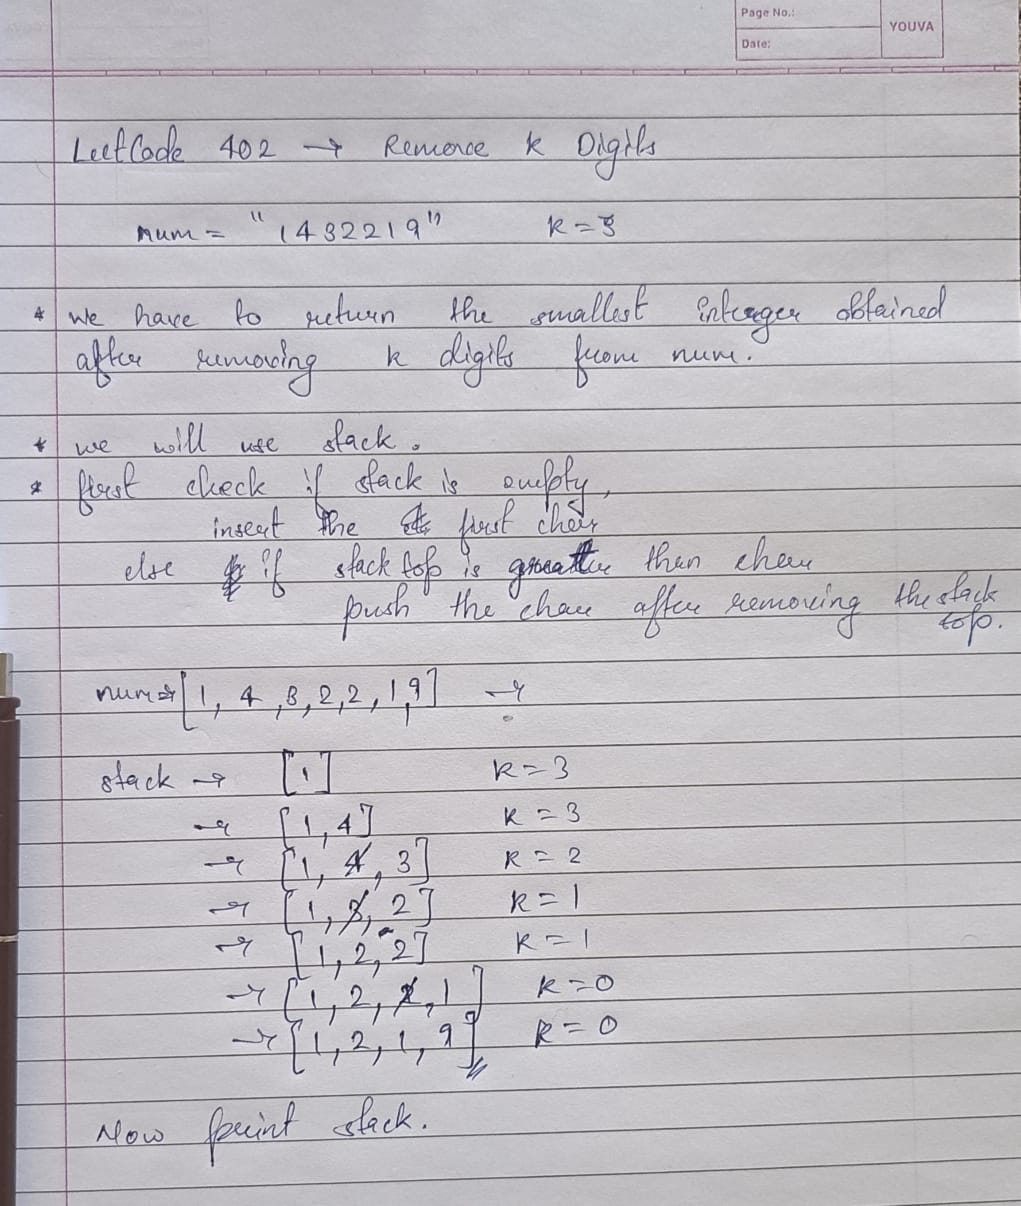 Page No.:
YOUVA
Date:
LeetCode 402 → Remove k Digits
num = "1432219" k = 3
* we have to return the smallest integer obtained
after removing k digits from num.
* we will use stack.
* first check if stack is empty,
insert the first char
else if stack top is greater than char
push the char after removing the stack
top.
num → [1, 4, 3, 2, 2, 1, 9] →
stack → [1] k = 3
→ [1, 4] k = 3
→ [1, 4, 3] k = 2
→ [1, 3, 2] k = 1
→ [1, 2, 2] k = 1
→ [1, 2, 2, 1] k = 0
→ [1, 2, 1, 9] k = 0
Now print stack.